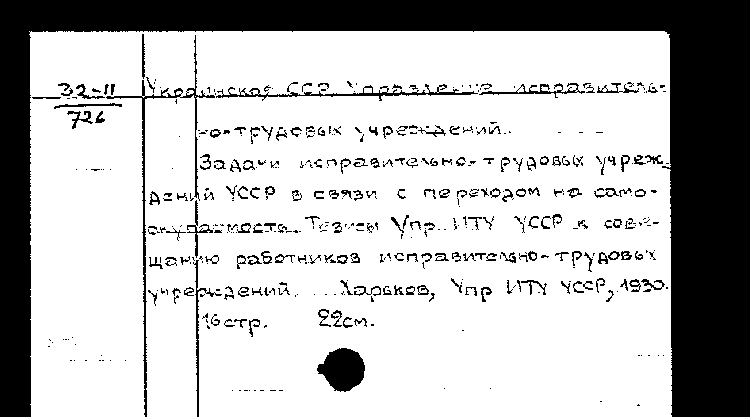 32-II
726
Украинская ССР. Управление исправитель-
но-трудовых учреждений.
Задачи исправительно-трудовых учреж-
дений УССР в связи с переходом на само-
окупаемость. Тезисы Упр. ИТУ УССР к сове-
щанию работников исправительно-трудовых
учреждений. Харьков, Упр ИТУ УССР, 1930.
16 стр. 22см.